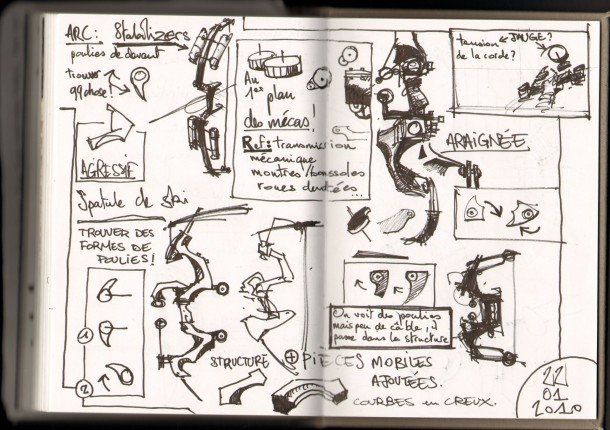 ARC: Stabilizers
poulies de devant
trouver
qqchose!
AGRESSIF
Spatule de ski
TROUVER DES
FORMES DE
POULIES!
1
2
STRUCTURE
Au
1er plan
des mécas!
Ref: transmission
mécanique
montres/boussoles
roues dentées...
JAUGE?
tension
de la corde?
ARAIGNÉE
On voit des poulies
mais peu de câble, il
passe dans la structure
+ PIECES MOBILES
AJOUTÉES.
COURBES en CREUX.
22
01
2010